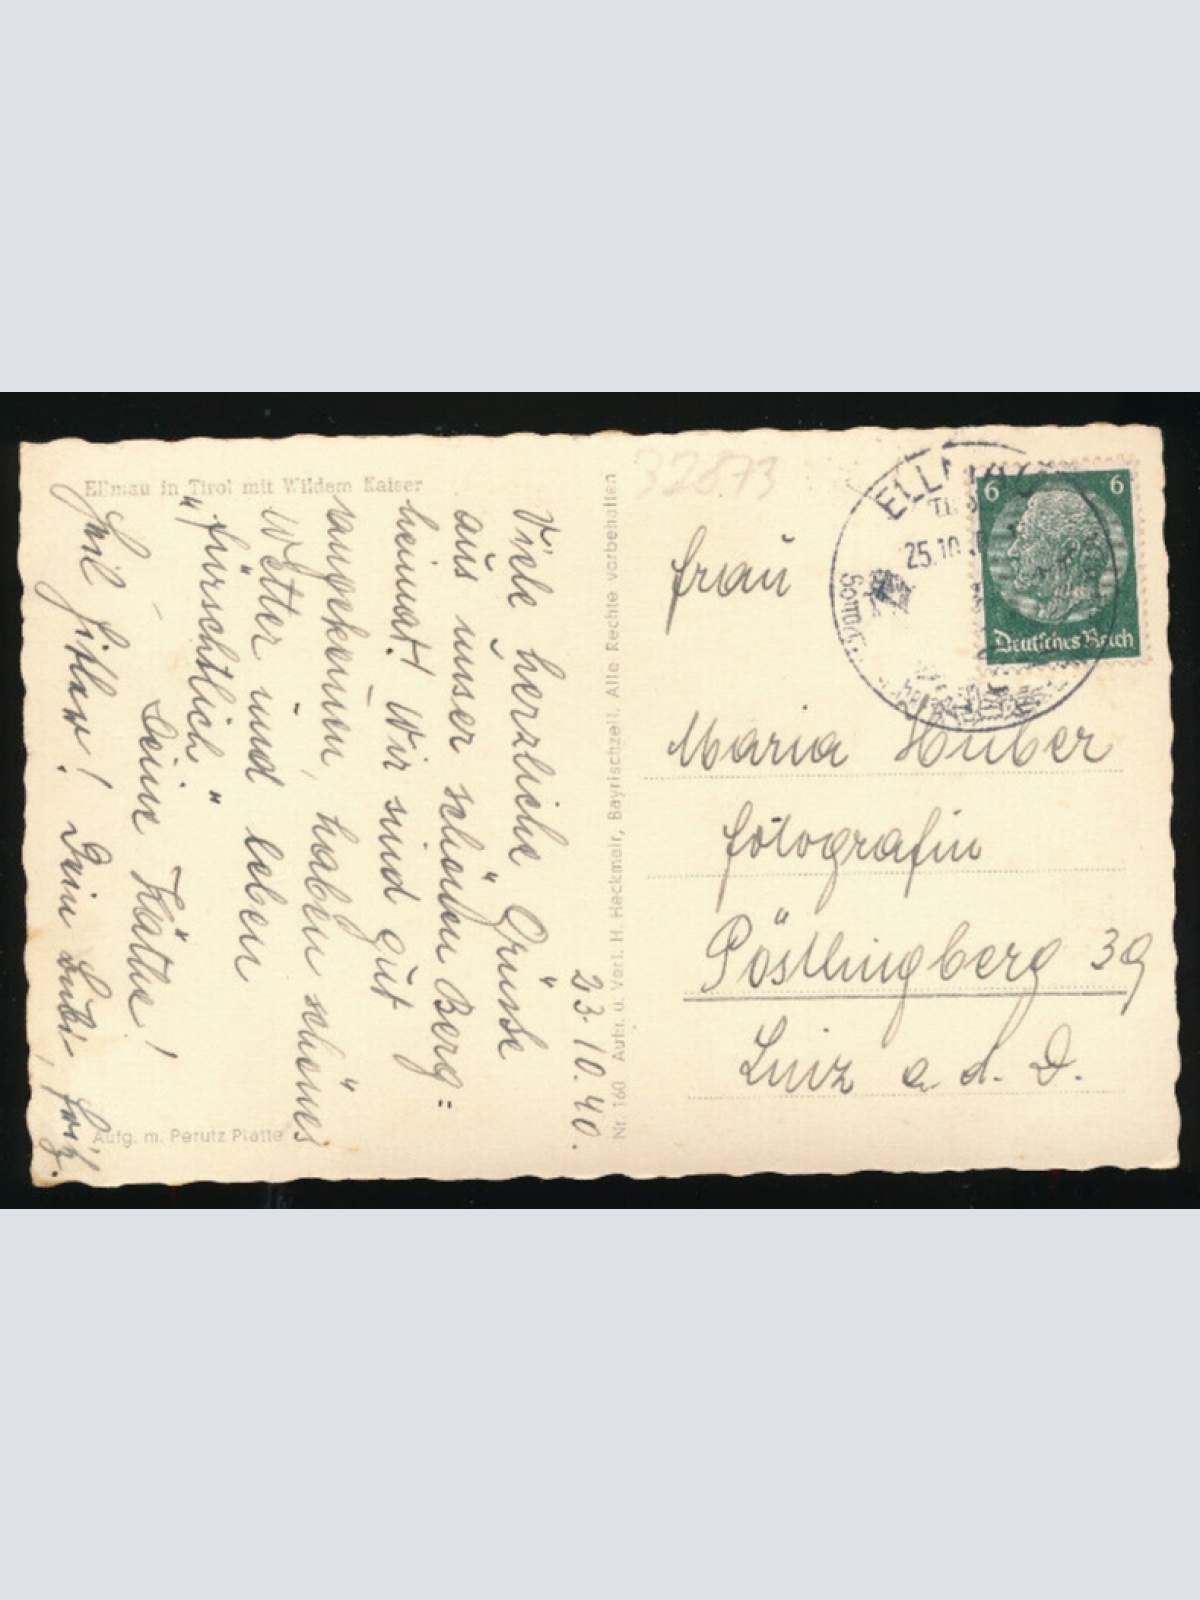 Ellmau in Tirol mit Wildem Kaiser
23.10.40.
Viele herzliche Grüsse
aus unser schönen Berg=
heimat! Wir sind gut
angekommen, haben schönes
Wetter und leben
"fürschtlich"
– Deine Käthe!
Heil Hitler! Dein Bubi, Fritz.
Aufg. m. Perutz Platte
Nr. 160 Aufn. u. Verl. H. Heckmair, Bayrischzell. Alle Rechte vorbehalten
32873
ELLMAU
25.10
6 6
Deutsches Reich
Frau
Maria Huber
Fotografin
Pöstlingberg 39
Linz a. d. D.